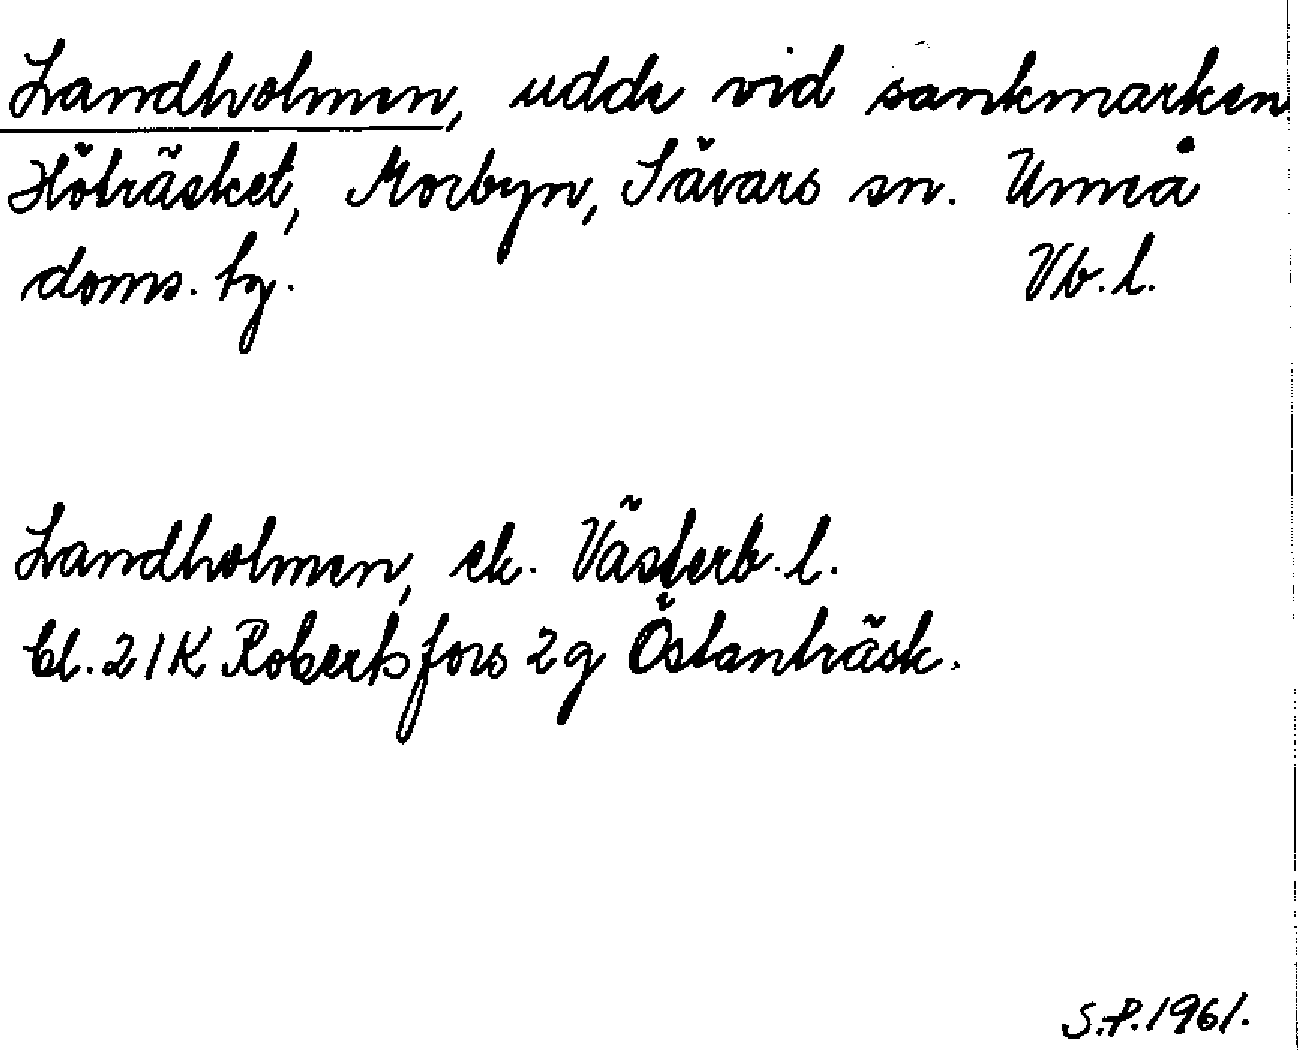 Landholmen, udde vid sankmarken
Höträsket, Morbyn, Sävars sn. Umeå
doms. tg. Vb. l.
Landholmen, ek. Västerb. l.
bl. 21K Robertsfors 2g Östanträsk.
S.P. 1961.